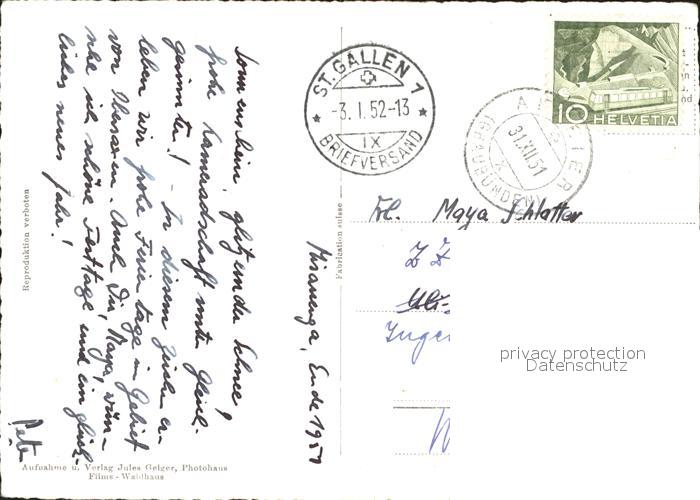 Sonnenschein, glitzender Schnee,
frohe Kameradschaft unter Gleich-
gesinnten! - In diesem Zeichen er-
leben wir frohe Ferientage im Gebiet
von Obersaxen. Auch Dir, Maya, wün-
sche ich schöne Festtage und ein glück-
liches neues Jahr!
Peter
Misanenga, Ende 1951
Reproduktion verboten
Fabrication suisse
Aufnahme u. Verlag Jules Geiger, Photohaus
Flims-Waldhaus
ST. GALLEN 1
-3. I. 52-13
IX
BRIEFVERSAND
31.XII.51
(GRAUBÜNDEN)
10 HELVETIA
Frl. Maya Schlatter
privacy protection
Datenschutz